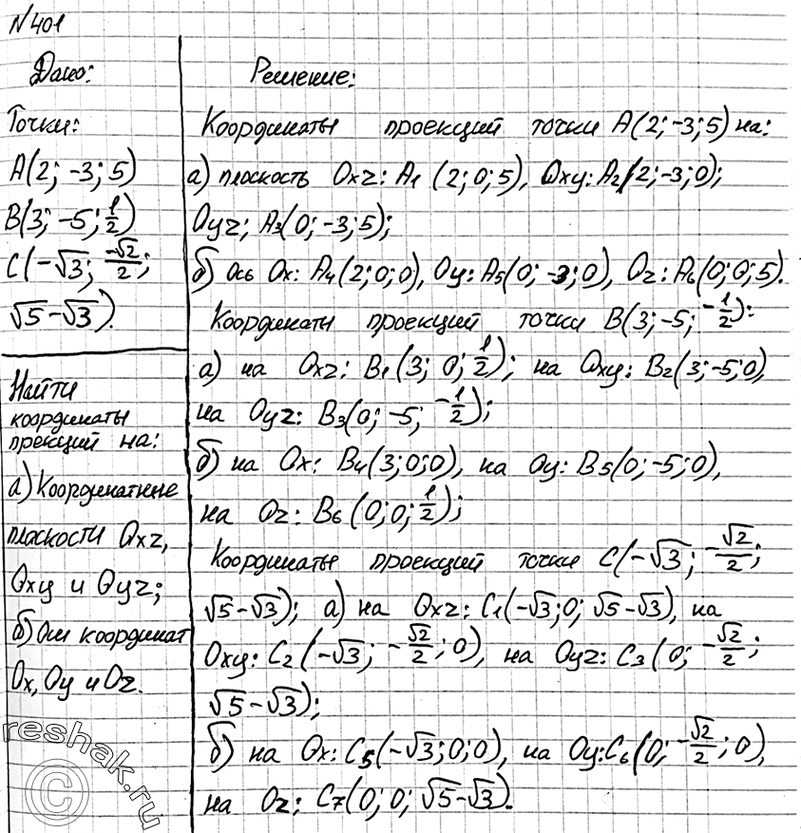 №401
Дано:
Точки:
A(2; -3; 5)
B(3; -5; 1/2)
C(-√3; -√2/2;
√5-√3).
Найти
координаты
прекций на:
а) Координатные
плоскости Oxz,
Oxy и Oyz;
б) Оси координат
Ox, Oy и Oz.
Решение:
Координаты проекций точки A(2; -3; 5) на:
а) плоскость Oxz: A1 (2; 0; 5), Oxy: A2(2; -3; 0);
Oyz; A3(0; -3; 5);
б) Ось Ox: A4(2; 0; 0), Oy: A5(0; -3; 0), Oz: A6(0; 0; 5).
Координаты проекций точки B(3; -5; -1/2):
а) на Oxz: B1(3; 0; 1/2); на Oxy: B2(3; -5; 0),
на Oyz: B3(0; -5; -1/2);
б) на Ox: B4(3; 0; 0), на Oy: B5(0; -5; 0),
на Oz: B6(0; 0; 1/2);
Координаты проекций точки C(-√3; -√2/2;
√5-√3); а) на Oxz: C1(-√3; 0; √5-√3), на
Oxy: C2(-√3; -√2/2; 0), на Oyz: C3(0; -√2/2;
√5-√3);
б) на Ox: C5(-√3; 0; 0), на Oy: C6(0; -√2/2; 0),
на Oz: C7(0; 0; √5-√3).
reshak.ru
©